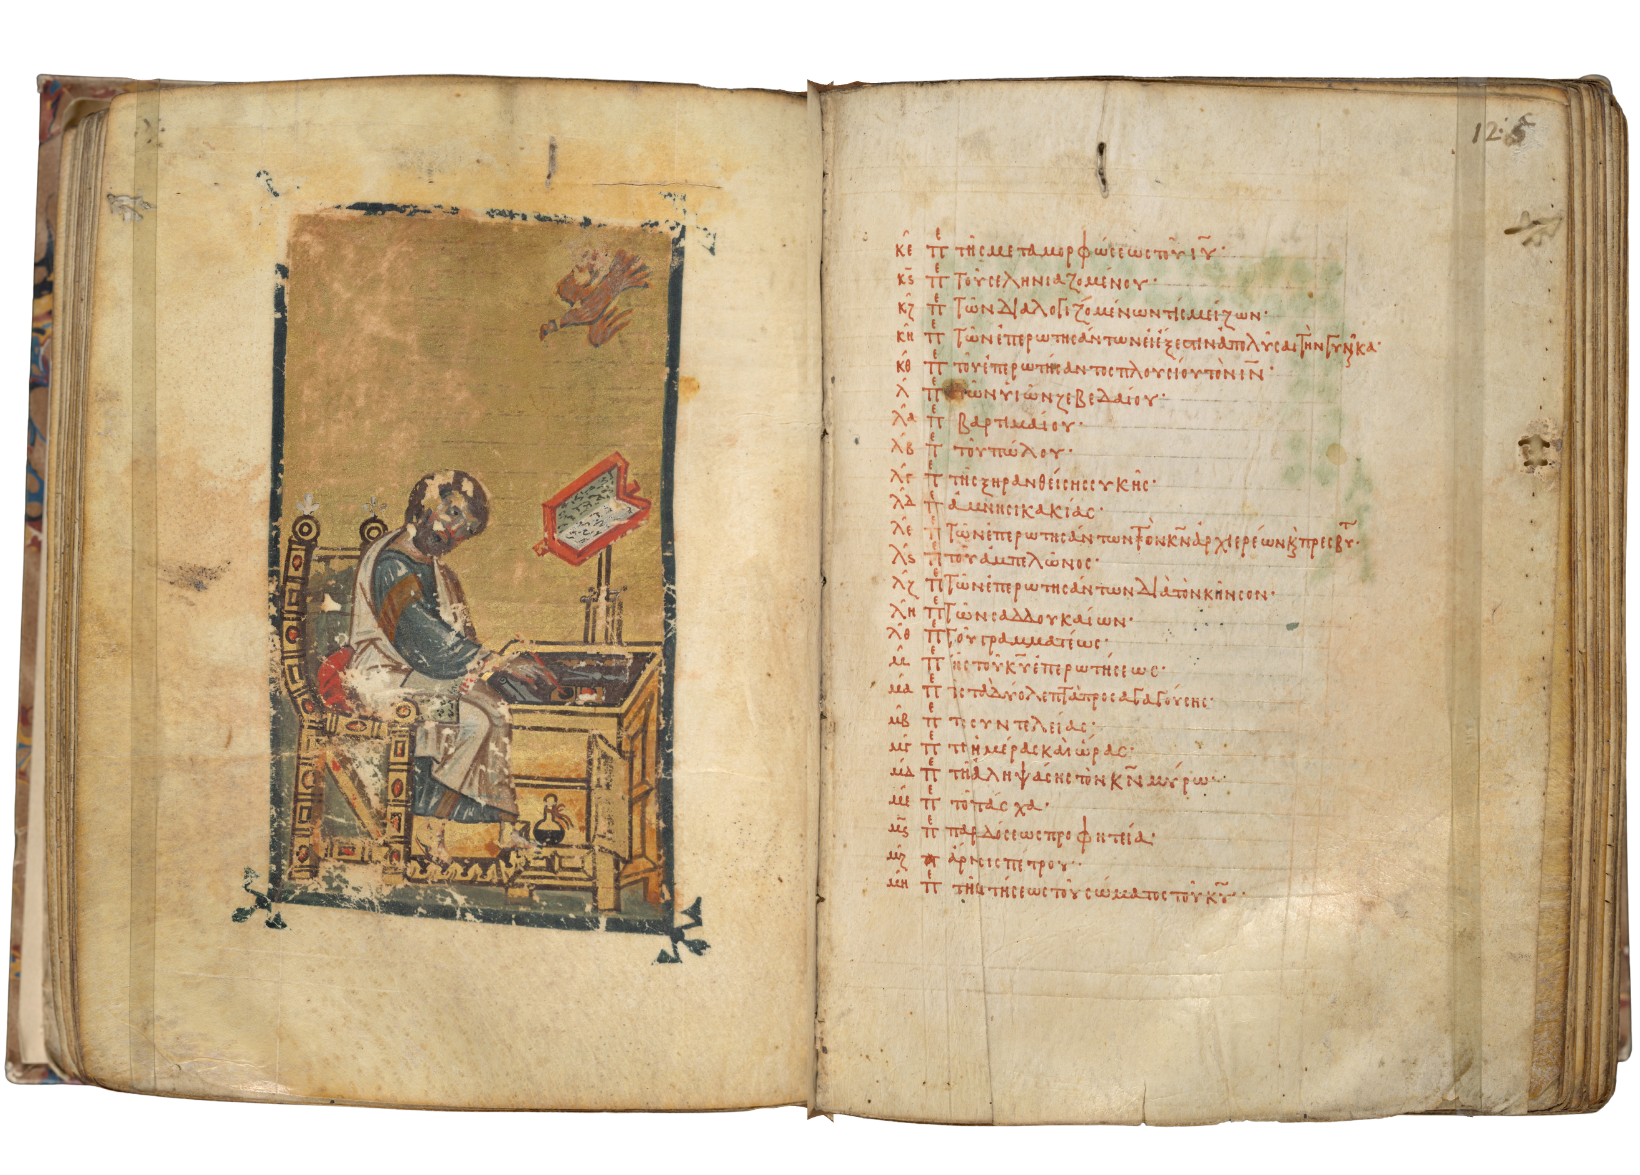 12·5
κε π̅ε τῆς μεταμορφώσεως τοῦ ι̅υ̅·
κς π̅ε τοῦ σεληνιαζομένου·
κζ π̅ε τῶν διαλογιζομένων τίς μείζων·
κη π̅ε τῶν ἐπερωτησάντων εἰ ἔξεστιν ἀπολῦσαι τὴν γυναῖκα·
κθ π̅ε τοῦ ἐπερωτήσαντος πλουσίου τὸν ι̅ν̅·
λ π̅ε τῶν υἱῶν ζεβεδαίου·
λα π̅ε βαρτιμαίου·
λβ π̅ε τοῦ πώλου·
λγ π̅ε τῆς ξηρανθείσης συκῆς·
λδ π̅ε ἀμνησικακίας·
λε π̅ε τῶν ἐπερωτησάντων τὸν κ̅ν̅ ἀρχιερέων κ̀ πρεσβυτ·
λς π̅ε τοῦ ἀμπελῶνος·
λζ π̅ε τῶν ἐπερωτησάντων διὰ τὸν κῆνσον·
λη π̅ε τῶν σαδδουκαίων·
λθ π̅ε τοῦ γραμματέως·
μ π̅ε τῆς τοῦ κ̅υ̅ ἐπερωτήσεως·
μα π̅ε τῆς τὰ δύο λεπτὰ προσαγαγούσης·
μβ π̅ε τῆς συντελείας·
μγ π̅ε τῆς ἡμέρας καὶ ὥρας·
μδ π̅ε τῆς ἀλειψάσης τὸν κ̅ν̅ μύρω·
με π̅ε τὸ πάσχα·
μς π̅ε παραδόσεως προφητεία·
μζ ἄρνησις πέτρου·
μη π̅ε τῆς αἰτήσεως τοῦ σώματος τοῦ κ̅υ̅·